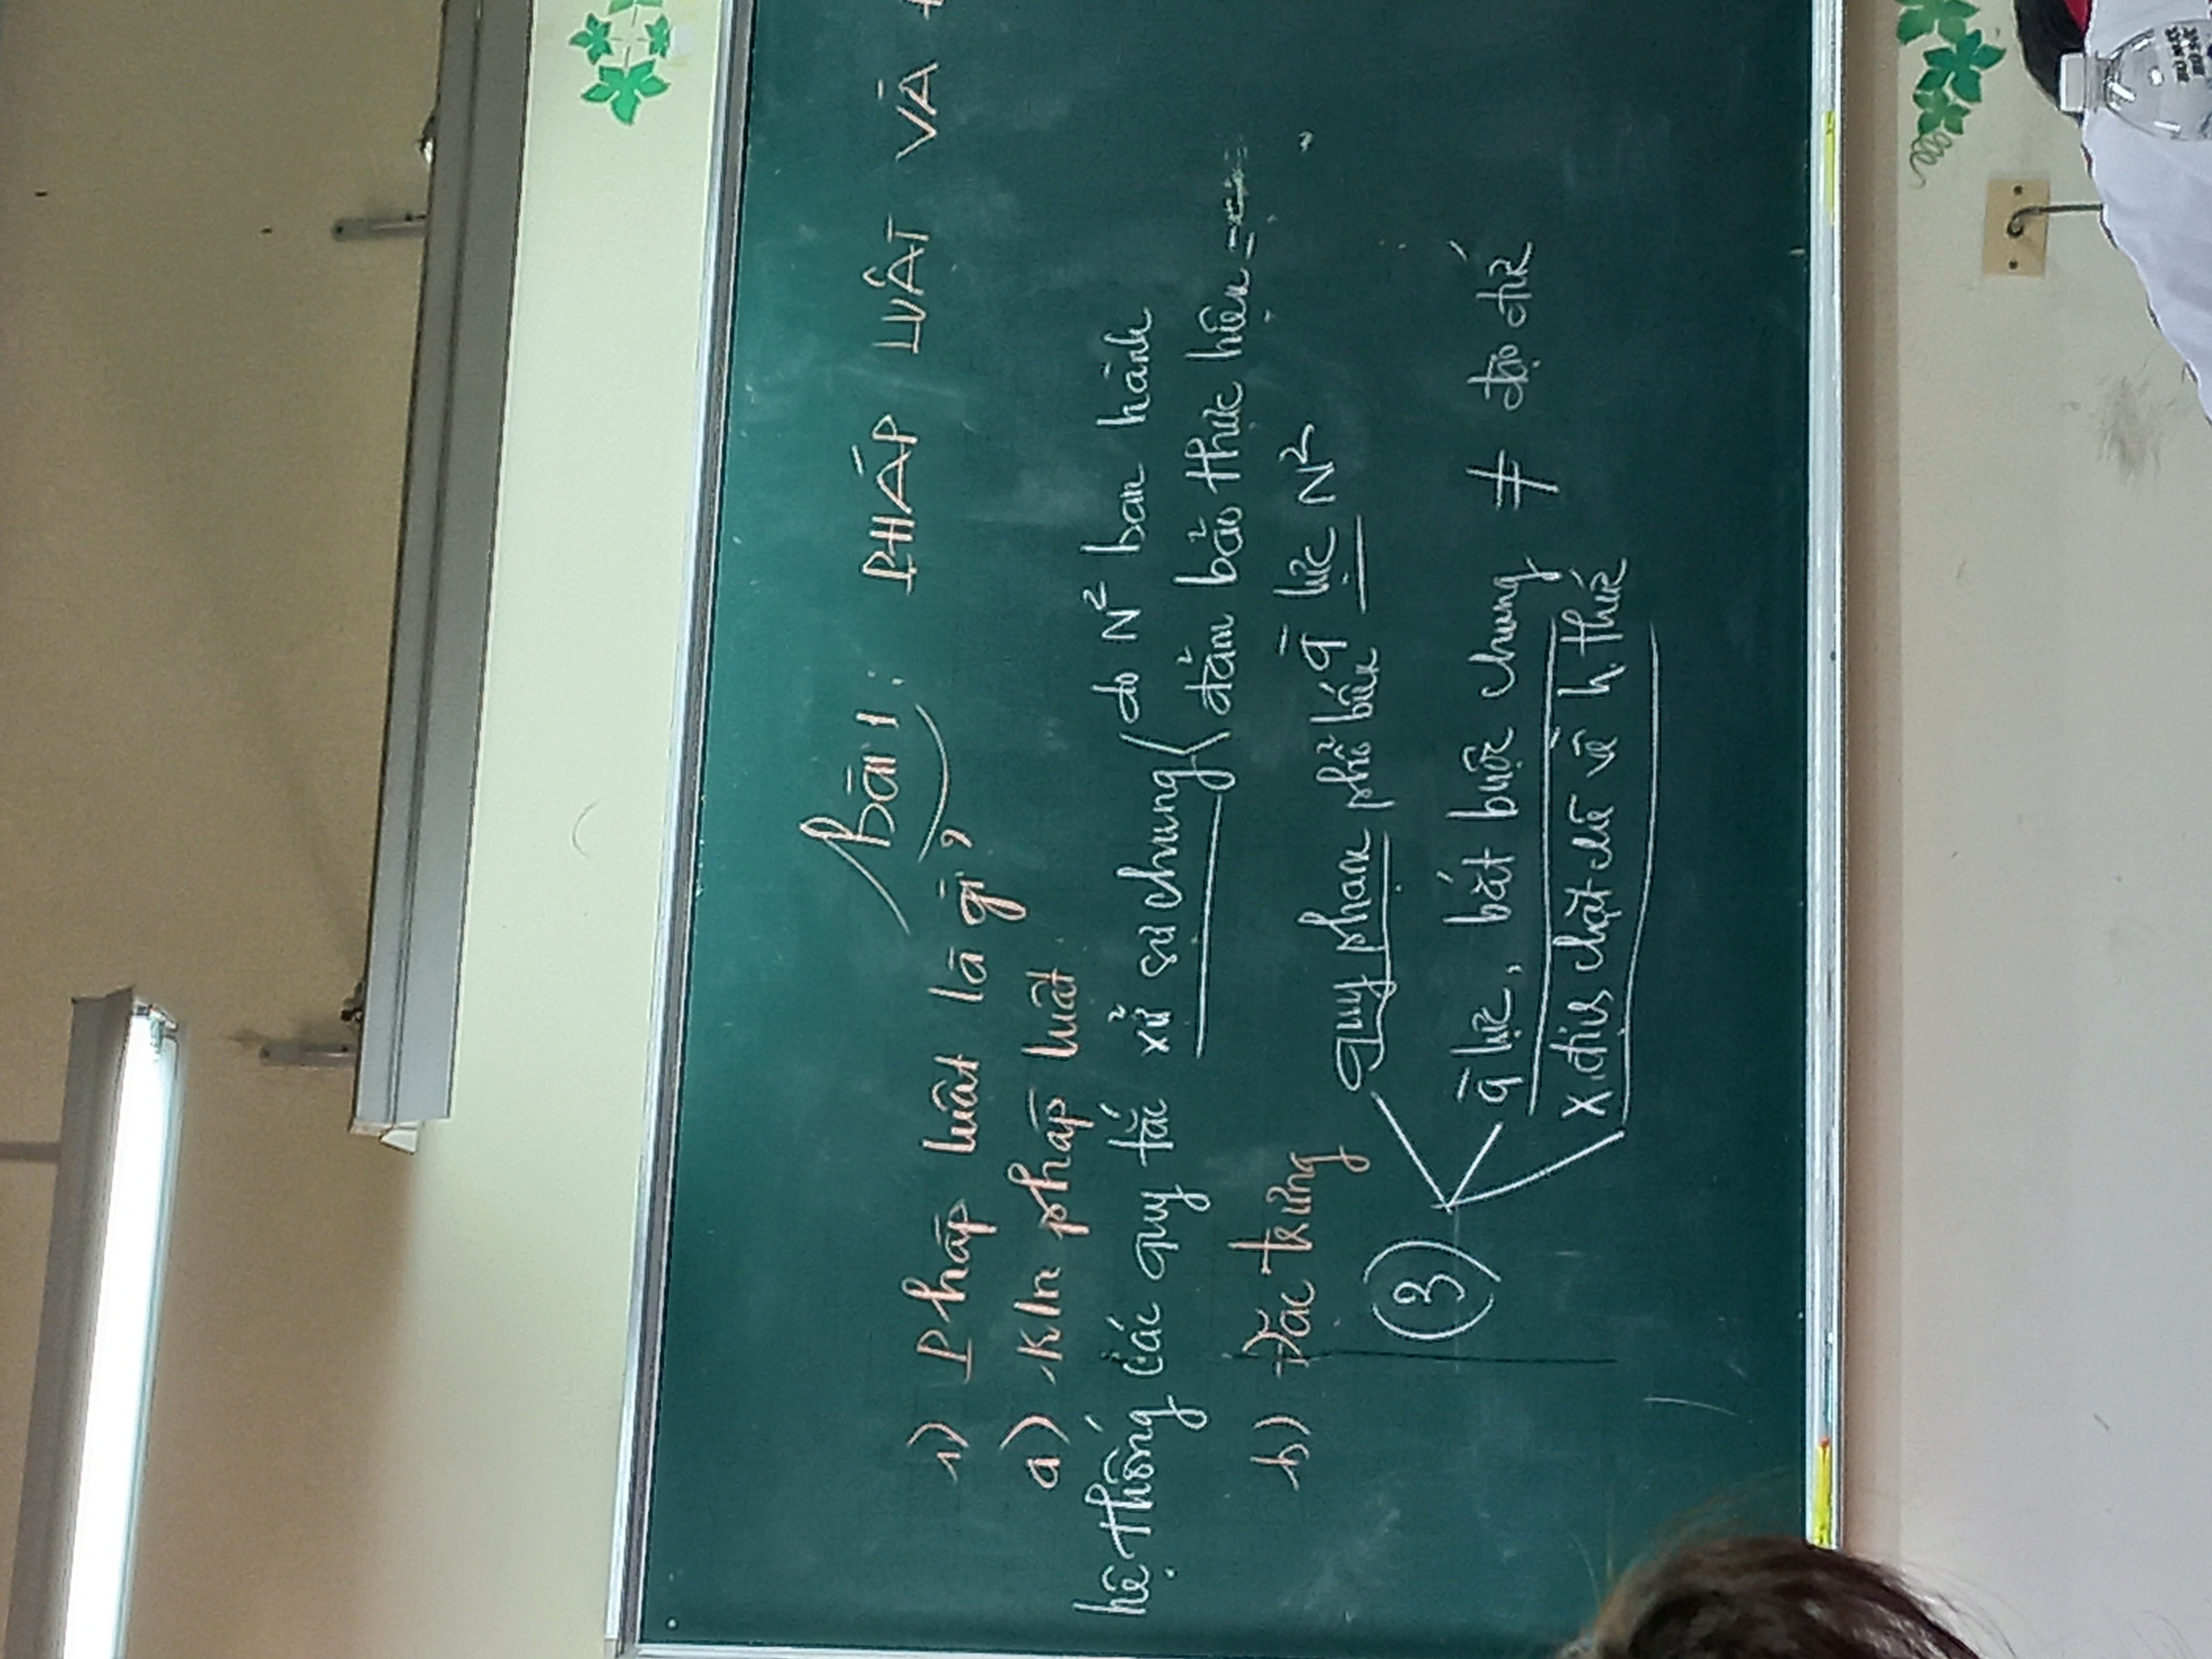 Bài 1: PHÁP LUẬT VÀ
1) Pháp luật là gì?
a) Kn pháp luật
hệ thống các quy tắc xử sự chung
do N² ban hành
đảm bảo thực hiện =
q̄ lực N²
b) Đặc trưng
(3)
quy phạm phổ biến
q̄ lực, bắt buộc chung ≠ đạo đức
x.định chặt chẽ về h.thức